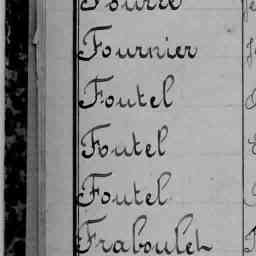 Fourré
Fournier
Foutel
Foutel
Foutel
Fraboulet